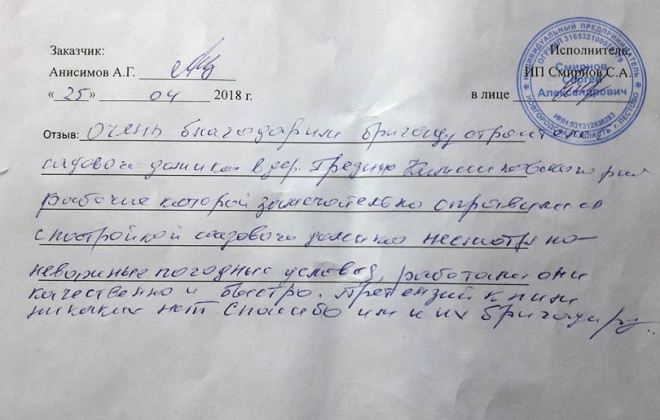 Заказчик:
Исполнитель:
Анисимов А.Г.
ИП Смирнов С.А.
«25» 04 2018 г.
в лице
ИНДИВИДУАЛЬНЫЙ ПРЕДПРИНИМАТЕЛЬ
Смирнов
Сергей
Александрович
НОВГОРОДСКАЯ ОБЛАСТЬ г. ПЕСТОВО
Отзыв: Очень благодарим бригаду
садового домика в дер.
рабочие которой замечательно справились
с постройкой садового домика несмотря на
неважные погодные условия, работали они
качественно и быстро. Претензий к ним
никаких нет. Спасибо им и их бригадиру.